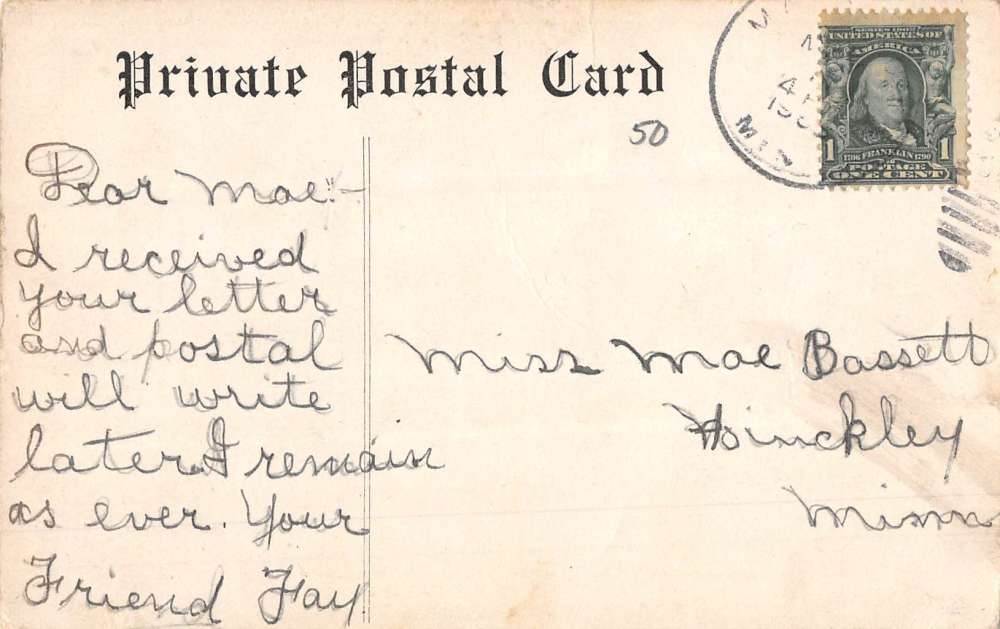 Private Postal Card
50
SERIES 1902
UNITED STATES OF
AMERICA
1 1706 FRANKLIN 1790 1
POSTAGE
ONE CENT
MIN
Dear Mae:-
I received
your letter
and postal
will write
later. I remain
as ever. Your
Friend Fay
Miss Mae Bassett
Hinckley
Minn